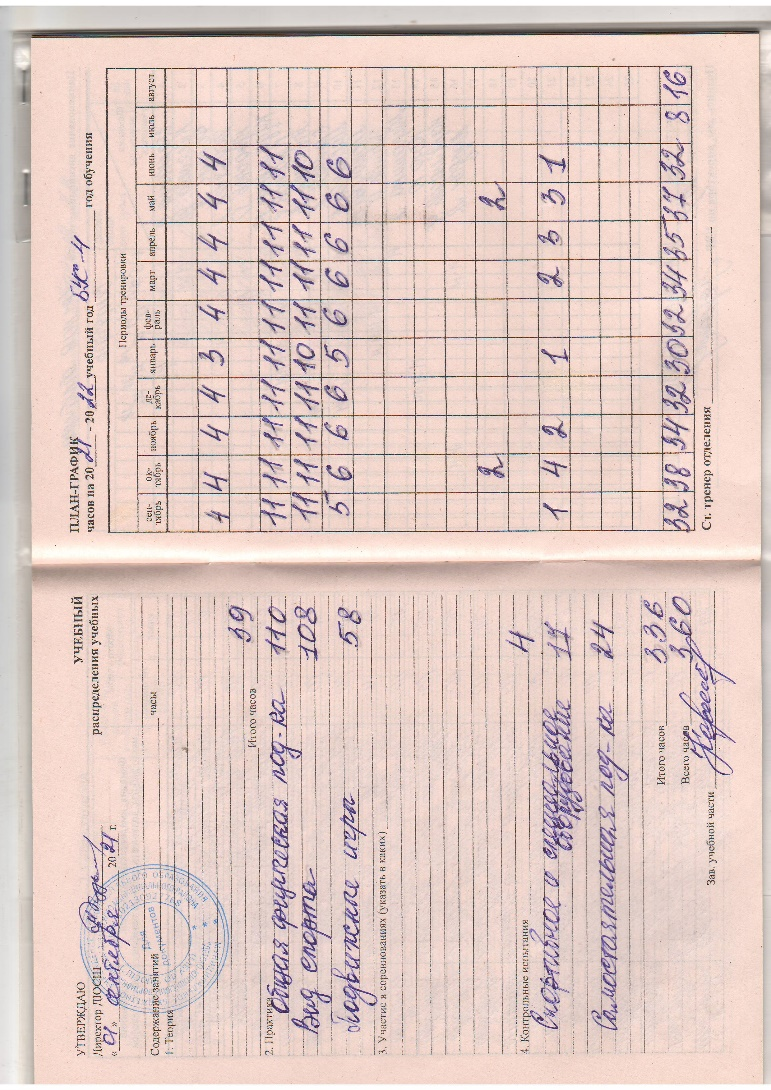 УТВЕРЖДАЮ
Директор ДЮСШ
« 01 » октября 20 21 г.
УЧЕБНЫЙ
распределения учебных
Содержание занятий часы
1. Теория
39
Итого часов
2. Практика
Общая физическая под-ка 110
Вид спорта 108
Подвижные игры 58
3. Участие в соревнованиях (указать в каких)
4. Контрольные испытания 4
Спортивное и специальное
оборудование 17
Самостоятельная под-ка 24
Итого часов 336
Всего часов 360
Зав. учебной части
ПЛАН-ГРАФИК
часов на 20 21 - 20 22 учебный год год обучения
Периоды тренировки
сентябрь октябрь ноябрь декабрь январь февраль март апрель май июнь июль август
4 4 4 4 3 4 4 4 4 4
11 11 11 11 11 11 11 11 11 11
11 11 11 11 10 11 11 11 11 10
5 6 6 6 5 6 6 6 6 6
2 2
1 4 2 1 2 3 3 1
32 38 34 32 30 32 34 35 37 32 8 16
Ст. тренер отделения